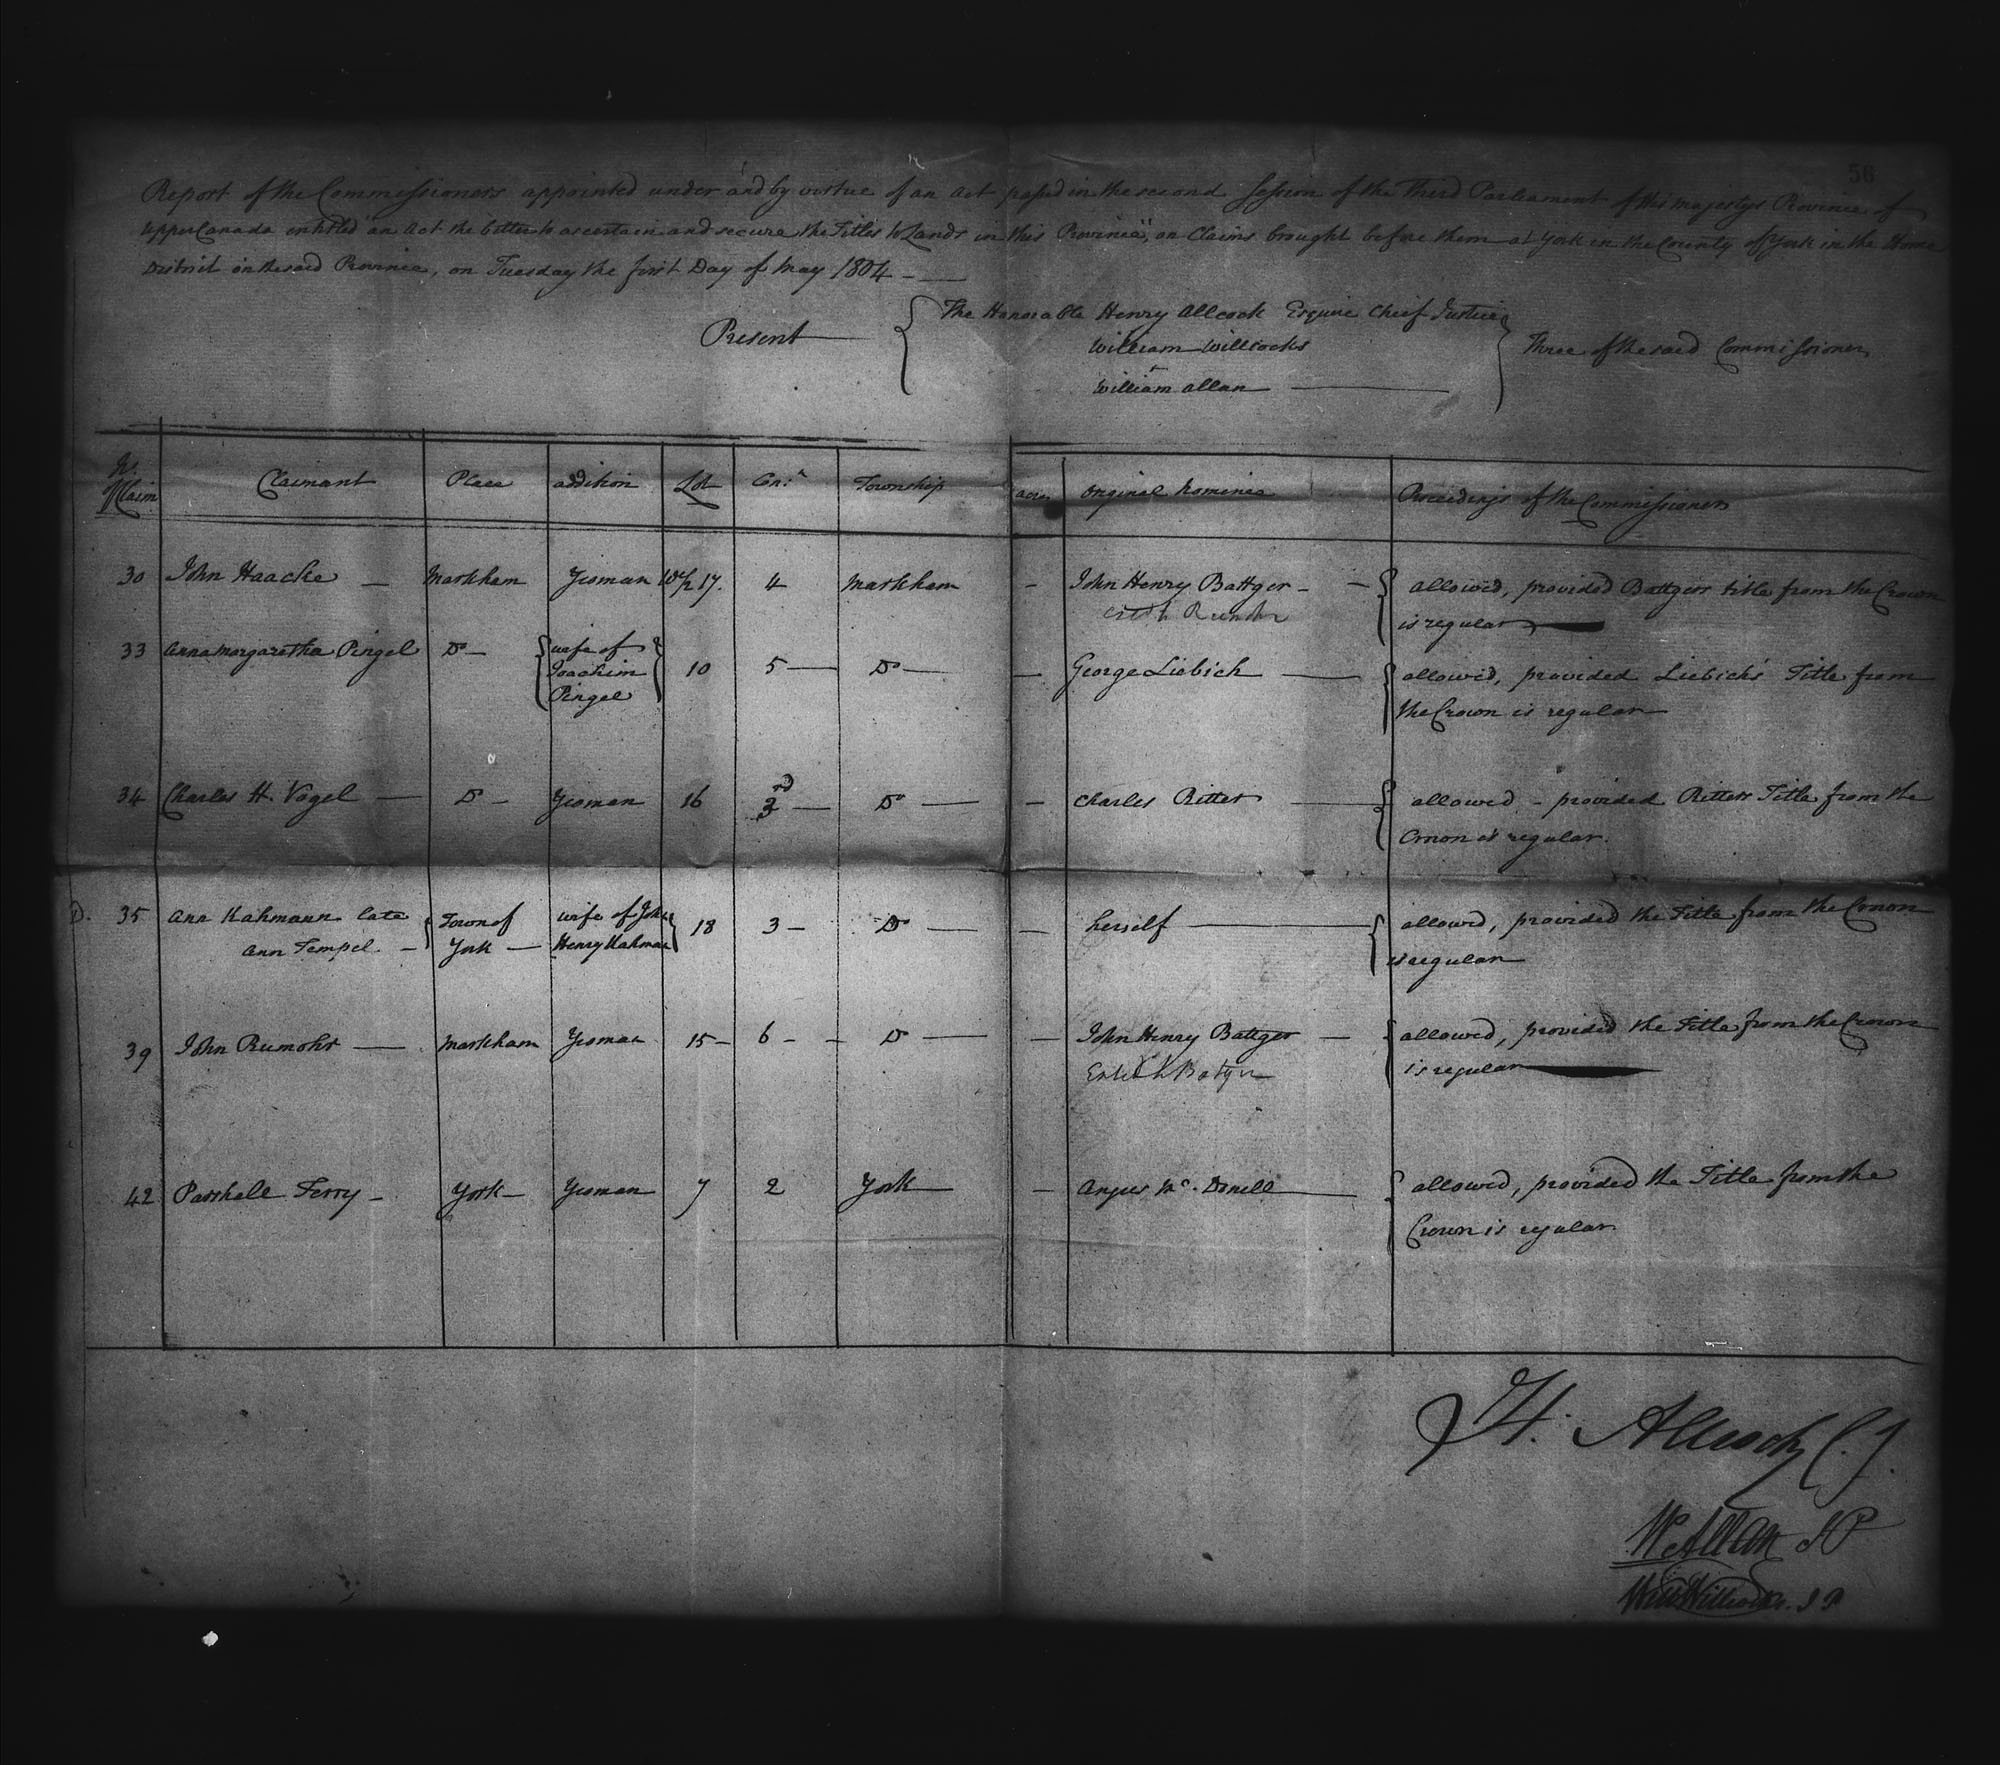 56
Report of the Commissioners appointed under and by virtue of an Act passed in the second Session of the Third Parliament of His Majestys Province of
Upper Canada entitled "an Act the better to ascertain and secure the Titles to Lands in this Province", on Claims brought before them at York in the County of York in the Home
District in the said Province, on Tuesday the first Day of May 1804
Present { The Honorable Henry Allcock Esquire Chief Justice
William Willcocks
William Allan } Three of the said Commissioners
No. of Claim | Claimant | Place | addition | Lot | Con:n | Township | acres | original Nominee | Proceedings of the Commissioners
30 | John Haacke — | Markham | Yeoman | W 1/2 17. | 4 | Markham | - | John Henry Battger - | { allowed, provided Battgers title from the Crown
is regular
33 | Anna Margaretha Pingel | Do - | { wife of Joachim Pingel } | 10 | 5 — | Do — | — | George Liebich — | { allowed, provided Liebich's Title from
the Crown is regular
34 | Charles H. Vogel — | Do - | Yeoman | 16 | 3rd — | Do — | — | Charles Ritter — | { allowed - provided Ritters Title from the
Crown is regular.
D. 35 | Ann Kahmann late
Ann Tempel - | { Town of York — | wife of John Henry Kahman } | 18 | 3 - | Do — | — | herself — | { allowed, provided the Title from the Crown
is regular
39 | John Rumohr — | Markham | Yeoman | 15 - | 6 - | Do — | — | John Henry Battger — | { allowed, provided the Title from the Crown
is regular
42 | Parshall Terry - | York - | Yeoman | 7 | 2 | York | — | Angus Mc. Donell — | { allowed, provided the Title from the
Crown is regular.
H. Allcock C.J.
W Allan JP
Will Willcocks. J P